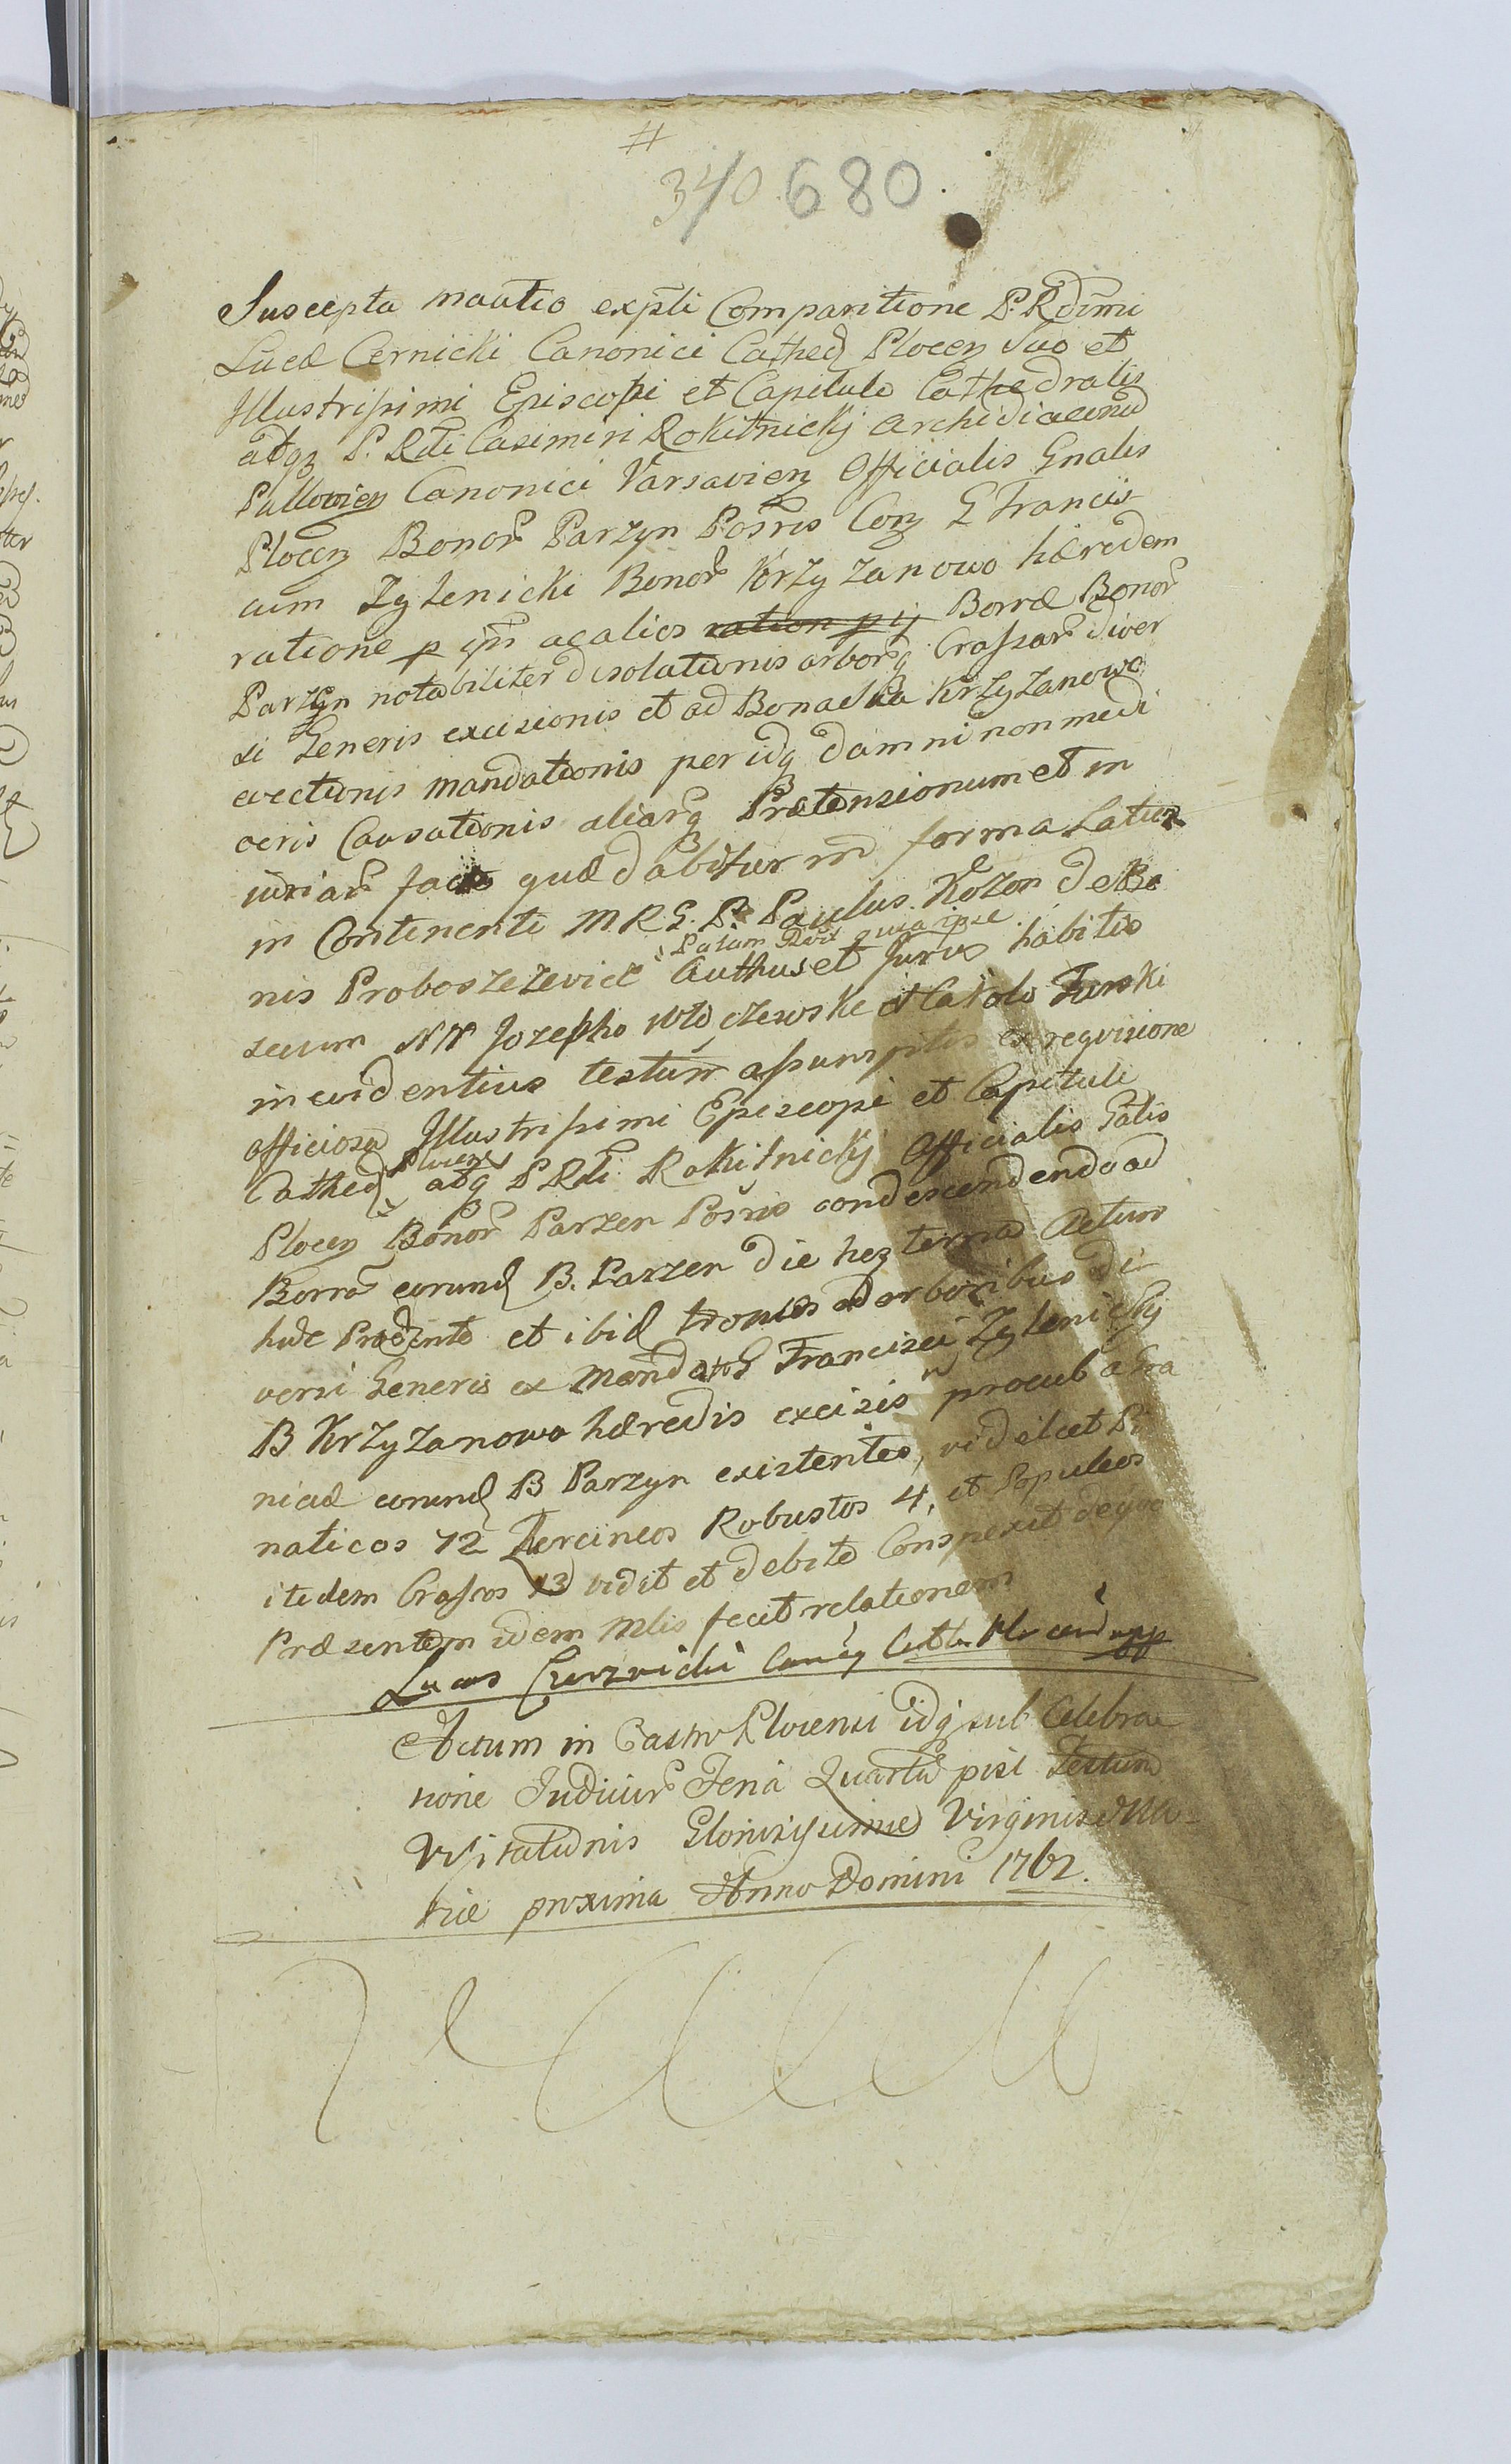 #
340 680
Suscepta mantio expti Comparitione P. Rdimi
Lucæ Cernicki Canonici Cathed Plocen Suo et
Illustrissimi Episcopi et Capituli Cathedralis
atqz P. Rdi Casimiri Rokitnickj Archidiaconi
Pultovien Canonici Varsavien Officialis Gnalis
Plocen Bonor Parzyn Posris Con G Francis
cum Zglenicki Bonor Krzyzanowo hæredem
ratione p acalios ration pij Borræ Bonor
Parzyn notabiliter desolationis arborq Crassar diver
si Generis excisionis et ad Bona sua Krzyzanowo
evectionis mandationis per idq damni non medi
ocris Causationis aliarq Prætensionum et in
iuriar facto quæ dabitur in forma Latius
in Continenti M R G. P. Paulus Kozon de Bo
nis Proboszczevice Authus et Jurus habitis
Palam Rdit quia ipse
secum NN Jozepho Wloczewski et Carolo Turski
in evidentius testium assumptis ex requisione
officiosa Illustrissimi Episcopi et Capituli
Cathed Plocens atq P Rdi Rokitnickj Officialis Galis
Plocen Bonor Parzen Posris condescendendo ad
Borra eorund B. Parzen die hezterna Actum
hunc Præcedente et ibid troncos ad arboribus di
versi Generis ex Mandato G Francisci Zglenickj
B Krzyzanowo hæredis excisis procul a Gra
niciæ eorund B Parzyn existentes, videlicet Pi
naticos 72 Quercineos Robustos 4, et Populeos
itidem Crassos 13 vidit et debite Conspexit de quo
Præsentem idem Mlis fecit relationem
Lucas Czernicki Canon Cath
Actum in Castro Plocensi idq sub Celebra
tione Judicior Feria Quarta post Festum
Visitationis Gloriosissimæ Virginis Ma-
riæ proxima Anno Domini 1762.